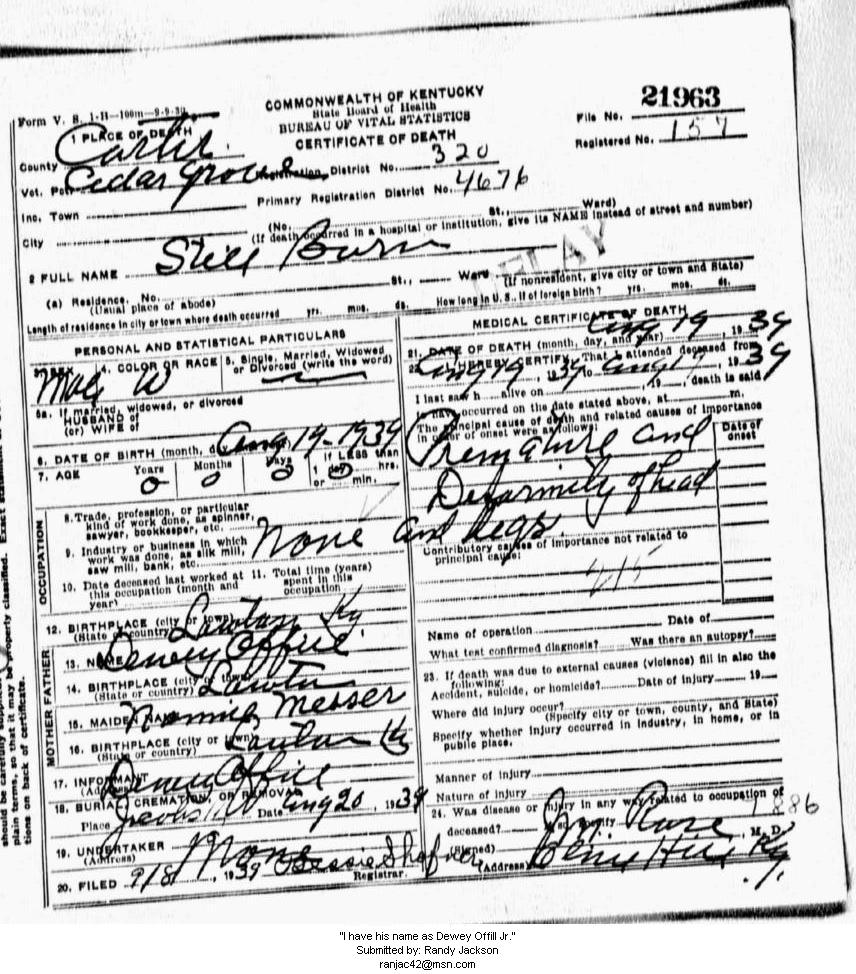 COMMONWEALTH OF KENTUCKY
State Board of Health
BUREAU OF VITAL STATISTICS
CERTIFICATE OF DEATH
Form V. S. 1-B—100m—9-9-30
21963
File No.
Registered No. 157
1 PLACE OF DEATH
County Carter
Registration District No. 320
Vot. Cedar Grove
Primary Registration District No. 4676
Inc. Town
City
(No. St., Ward)
(If death occurred in a hospital or institution, give its NAME instead of street and number)
DELAY
2 FULL NAME Still Born
(a) Residence. No. St., Ward
(Usual place of abode)
(If nonresident, give city or town and State)
Length of residence in city or town where death occurred yrs. mos. ds.
How long in U. S., if of foreign birth? yrs. mos. ds.
PERSONAL AND STATISTICAL PARTICULARS
3. SEX 4. COLOR OR RACE 5. Single, Married, Widowed
or Divorced (write the word)
Male W
5a. If married, widowed, or divorced
HUSBAND of
(or) WIFE of
6. DATE OF BIRTH (month, Aug 19-1939
7. AGE Years Months Days If LESS than
0 0 0 1 day hrs.
or min.
OCCUPATION
8. Trade, profession, or particular
kind of work done, as spinner,
sawyer, bookkeeper, etc.
9. Industry or business in which
work was done, as silk mill,
saw mill, bank, etc.
None
10. Date deceased last worked at
this occupation (month and
year)
11. Total time (years)
spent in this
occupation
12. BIRTHPLACE (city or town) Lawton Ky
(State or country)
FATHER
13. NAME Dewey Offill
14. BIRTHPLACE (city or town) Lawton
(State or country)
MOTHER
15. MAIDEN NAME Nannie Messer
16. BIRTHPLACE (city or town) Lawton Ky
(State or country)
17. INFORMANT Dewey Offill
(Address)
18. BURIAL, CREMATION, OR REMOVAL
Place Date Aug 20, 1939
19. UNDERTAKER None
(Address)
20. FILED 9/8, 1939 Bessie
Registrar.
MEDICAL CERTIFICATE OF DEATH
21. DATE OF DEATH (month, day, and year) Aug 19, 1939
22. I HEREBY CERTIFY, That I attended deceased from
Aug 19, 1939 to Aug 19, 1939
I last saw h alive on , 19 , death is said
to have occurred on the date stated above, at m.
The principal cause of death and related causes of importance
in order of onset were as follows:
Date of
onset
Premature and
Deformity of head
and legs.
Contributory causes of importance not related to
principal cause:
Name of operation Date of
What test confirmed diagnosis? Was there an autopsy?
23. If death was due to external causes (violence) fill in also the
following:
Accident, suicide, or homicide? Date of injury 19
Where did injury occur?
(Specify city or town, county, and State)
Specify whether injury occurred in industry, in home, or in
public place.
Manner of injury
Nature of injury
24. Was disease or injury in any way related to occupation of
deceased? If so, specify
(Signed) J M Rose, M. D.
(Address) Olive Hill Ky
should be carefully
plain terms, so that it may be properly classified. Exact
tions on back of certificate.
"I have his name as Dewey Offill Jr."
Submitted by: Randy Jackson
ranjac42@msn.com